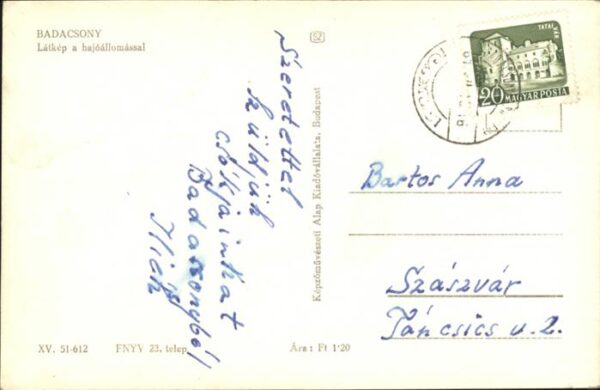 BADACSONY
Látkép a hajóállomással
Szeretettel
küldjük
csókjainkat
Badacsonyból
Képzőművészeti Alap Kiadóvállalata, Budapest
TATAI VÁR
20 MAGYAR POSTA
Bartos Anna
Szászvár
Táncsics u. 2.
XV. 51-612 FNYV 23. telep
Ára: Ft 1·20